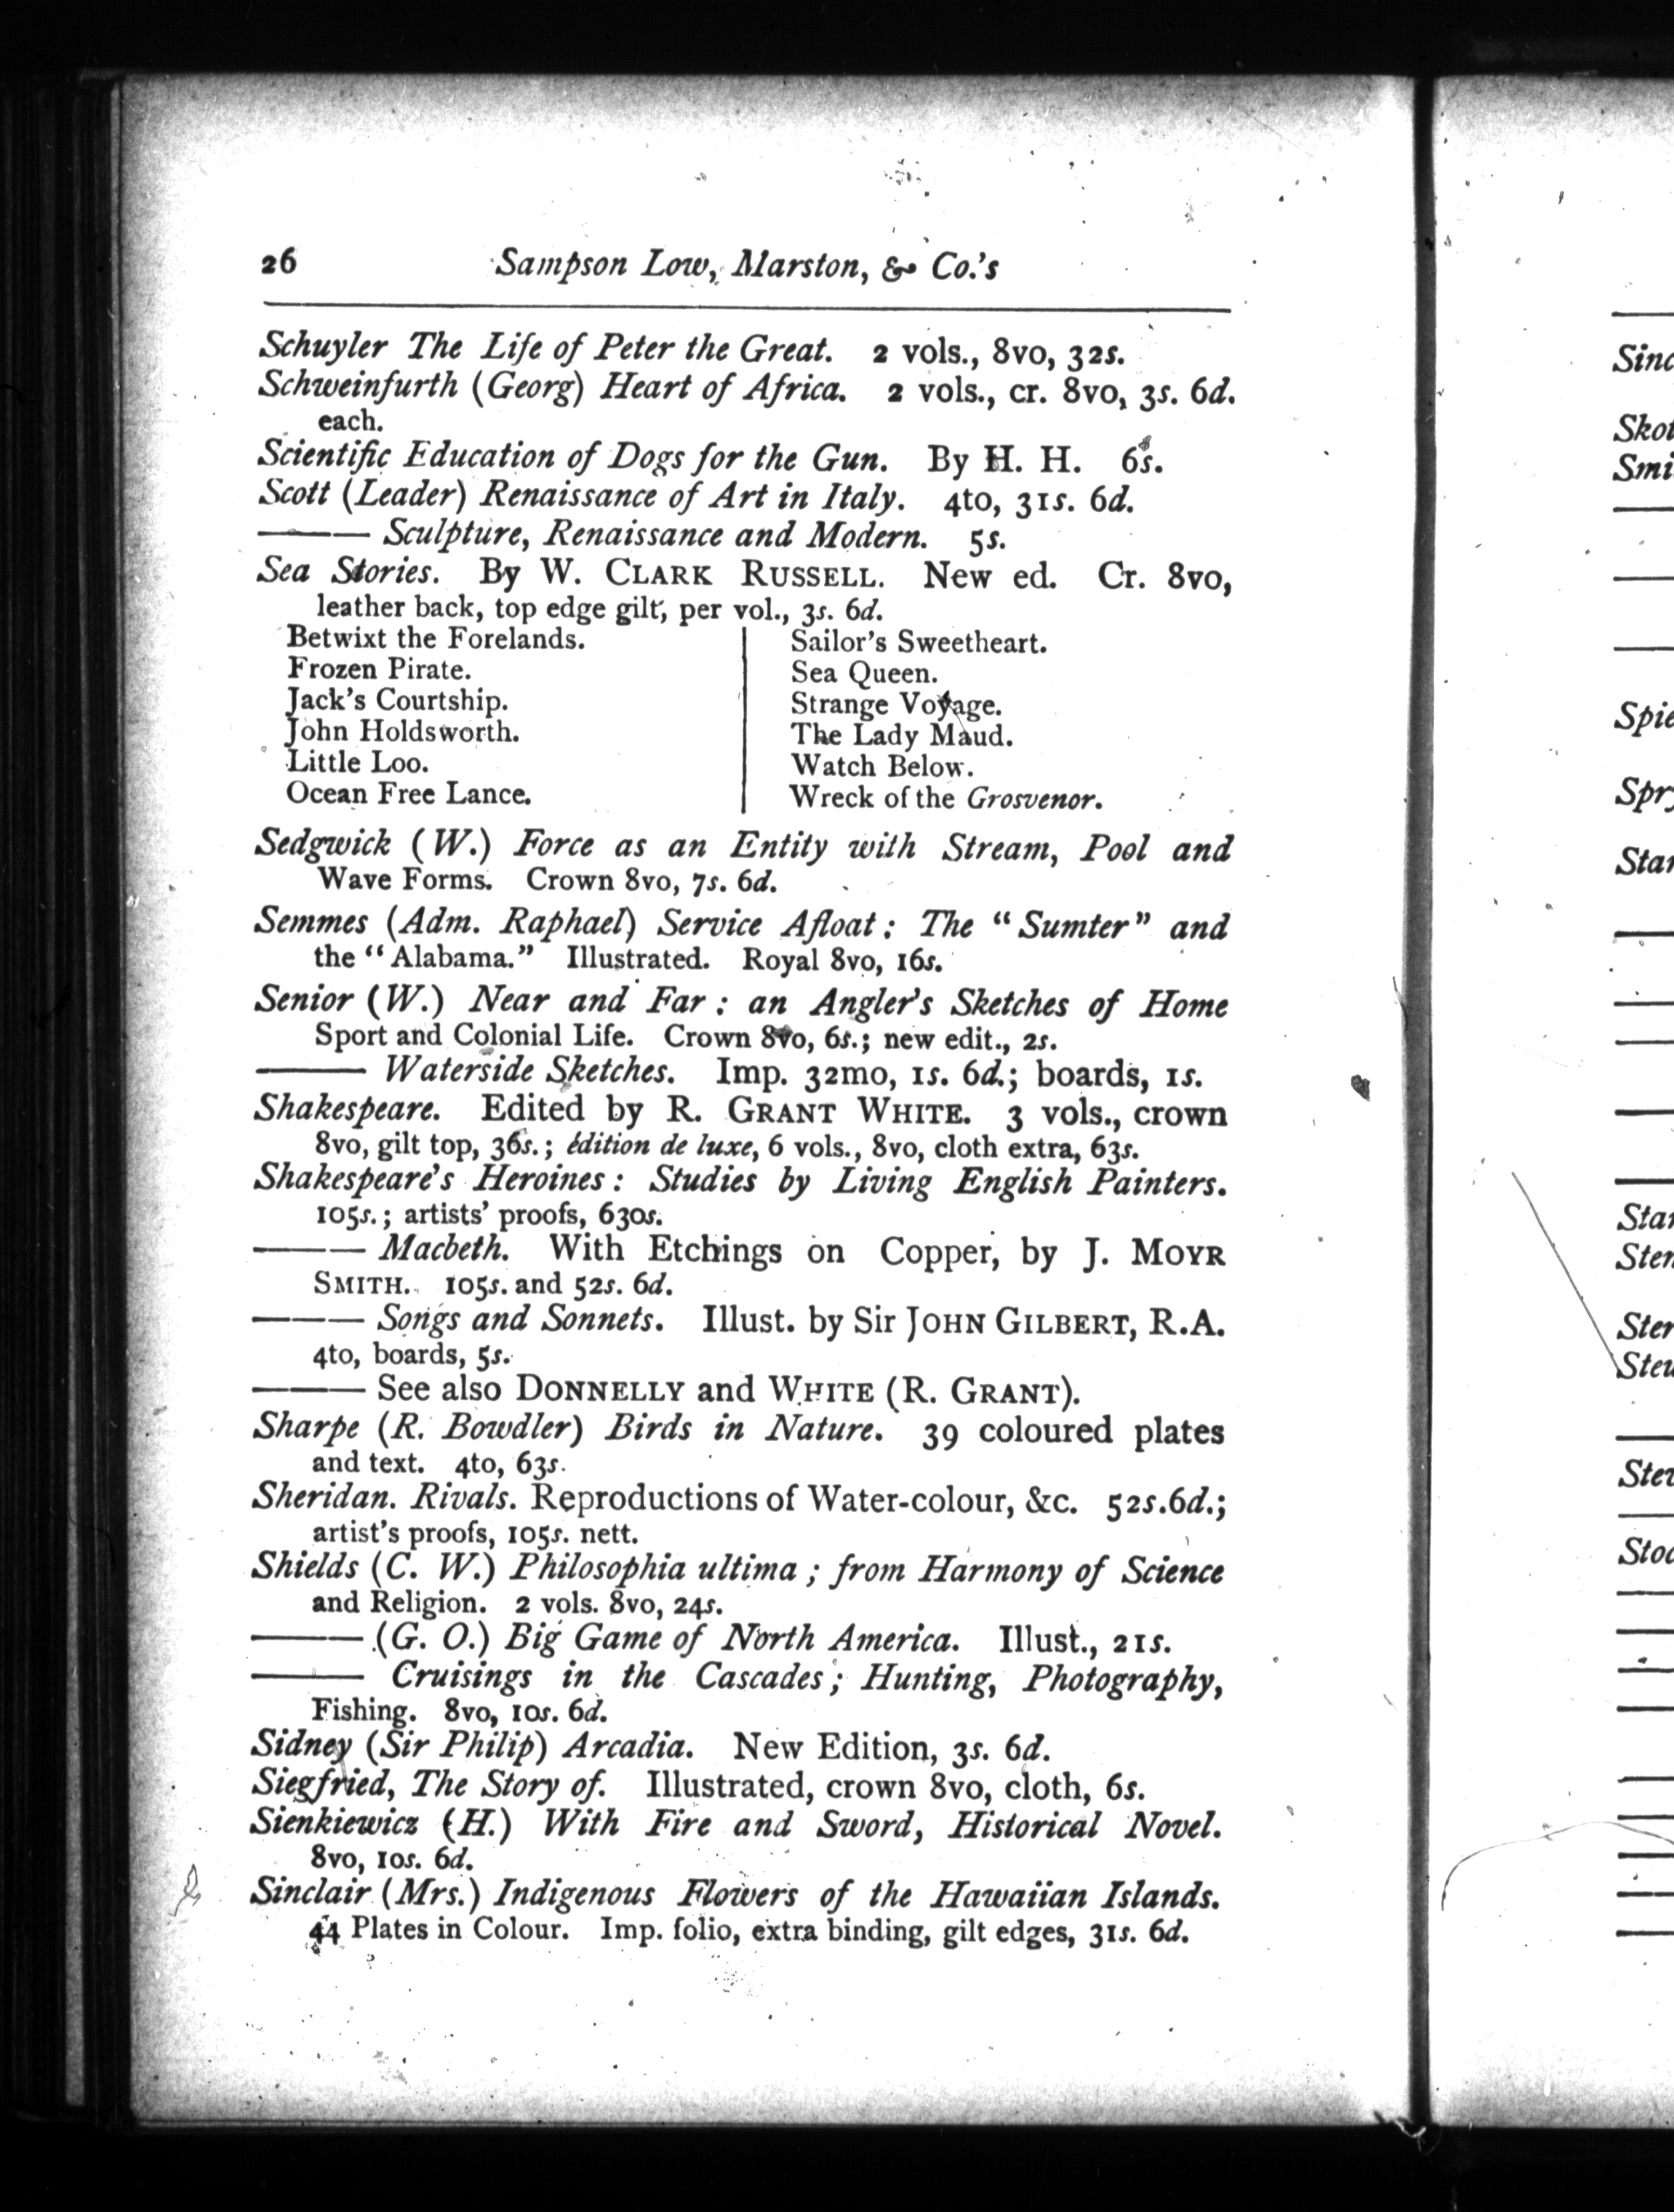 26 Sampson Low, Marston, & Co.'s
Schuyler The Life of Peter the Great. 2 vols., 8vo, 32s.
Schweinfurth (Georg) Heart of Africa. 2 vols., cr. 8vo, 3s. 6d.
each.
Scientific Education of Dogs for the Gun. By H. H. 6s.
Scott (Leader) Renaissance of Art in Italy. 4to, 31s. 6d.
——— Sculpture, Renaissance and Modern. 5s.
Sea Stories. By W. CLARK RUSSELL. New ed. Cr. 8vo,
leather back, top edge gilt, per vol., 3s. 6d.
Betwixt the Forelands.
Frozen Pirate.
Jack's Courtship.
John Holdsworth.
Little Loo.
Ocean Free Lance.
Sailor's Sweetheart.
Sea Queen.
Strange Voyage.
The Lady Maud.
Watch Below.
Wreck of the Grosvenor.
Sedgwick (W.) Force as an Entity with Stream, Pool and
Wave Forms. Crown 8vo, 7s. 6d.
Semmes (Adm. Raphael) Service Afloat: The "Sumter" and
the "Alabama." Illustrated. Royal 8vo, 16s.
Senior (W.) Near and Far: an Angler's Sketches of Home
Sport and Colonial Life. Crown 8vo, 6s.; new edit., 2s.
——— Waterside Sketches. Imp. 32mo, 1s. 6d.; boards, 1s.
Shakespeare. Edited by R. GRANT WHITE. 3 vols., crown
8vo, gilt top, 36s.; édition de luxe, 6 vols., 8vo, cloth extra, 63s.
Shakespeare's Heroines: Studies by Living English Painters.
105s.; artists' proofs, 630s.
——— Macbeth. With Etchings on Copper, by J. MOYR
SMITH. 105s. and 52s. 6d.
——— Songs and Sonnets. Illust. by Sir JOHN GILBERT, R.A.
4to, boards, 5s.
——— See also DONNELLY and WHITE (R. GRANT).
Sharpe (R. Bowdler) Birds in Nature. 39 coloured plates
and text. 4to, 63s.
Sheridan. Rivals. Reproductions of Water-colour, &c. 52s.6d.;
artist's proofs, 105s. nett.
Shields (C. W.) Philosophia ultima; from Harmony of Science
and Religion. 2 vols. 8vo, 24s.
——— (G. O.) Big Game of North America. Illust., 21s.
——— Cruisings in the Cascades; Hunting, Photography,
Fishing. 8vo, 10s. 6d.
Sidney (Sir Philip) Arcadia. New Edition, 3s. 6d.
Siegfried, The Story of. Illustrated, crown 8vo, cloth, 6s.
Sienkiewicz (H.) With Fire and Sword, Historical Novel.
8vo, 10s. 6d.
Sinclair (Mrs.) Indigenous Flowers of the Hawaiian Islands.
44 Plates in Colour. Imp. folio, extra binding, gilt edges, 31s. 6d.